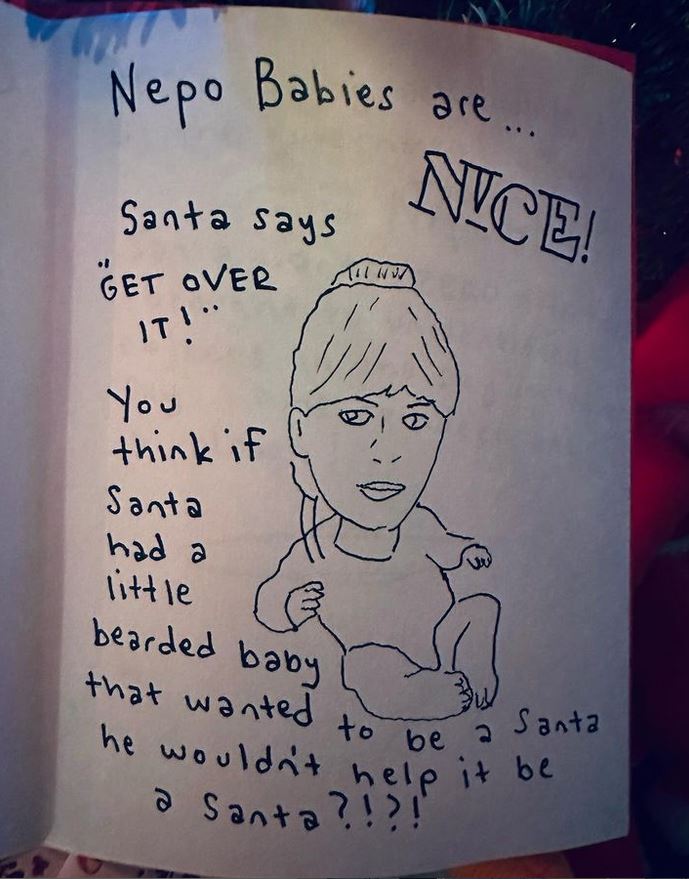 Nepo Babies are...
NICE!
Santa says
"GET OVER
IT!"
You
think if
Santa
had a
little
bearded baby
that wanted to be a Santa
he wouldn't help it be
a Santa?!?!